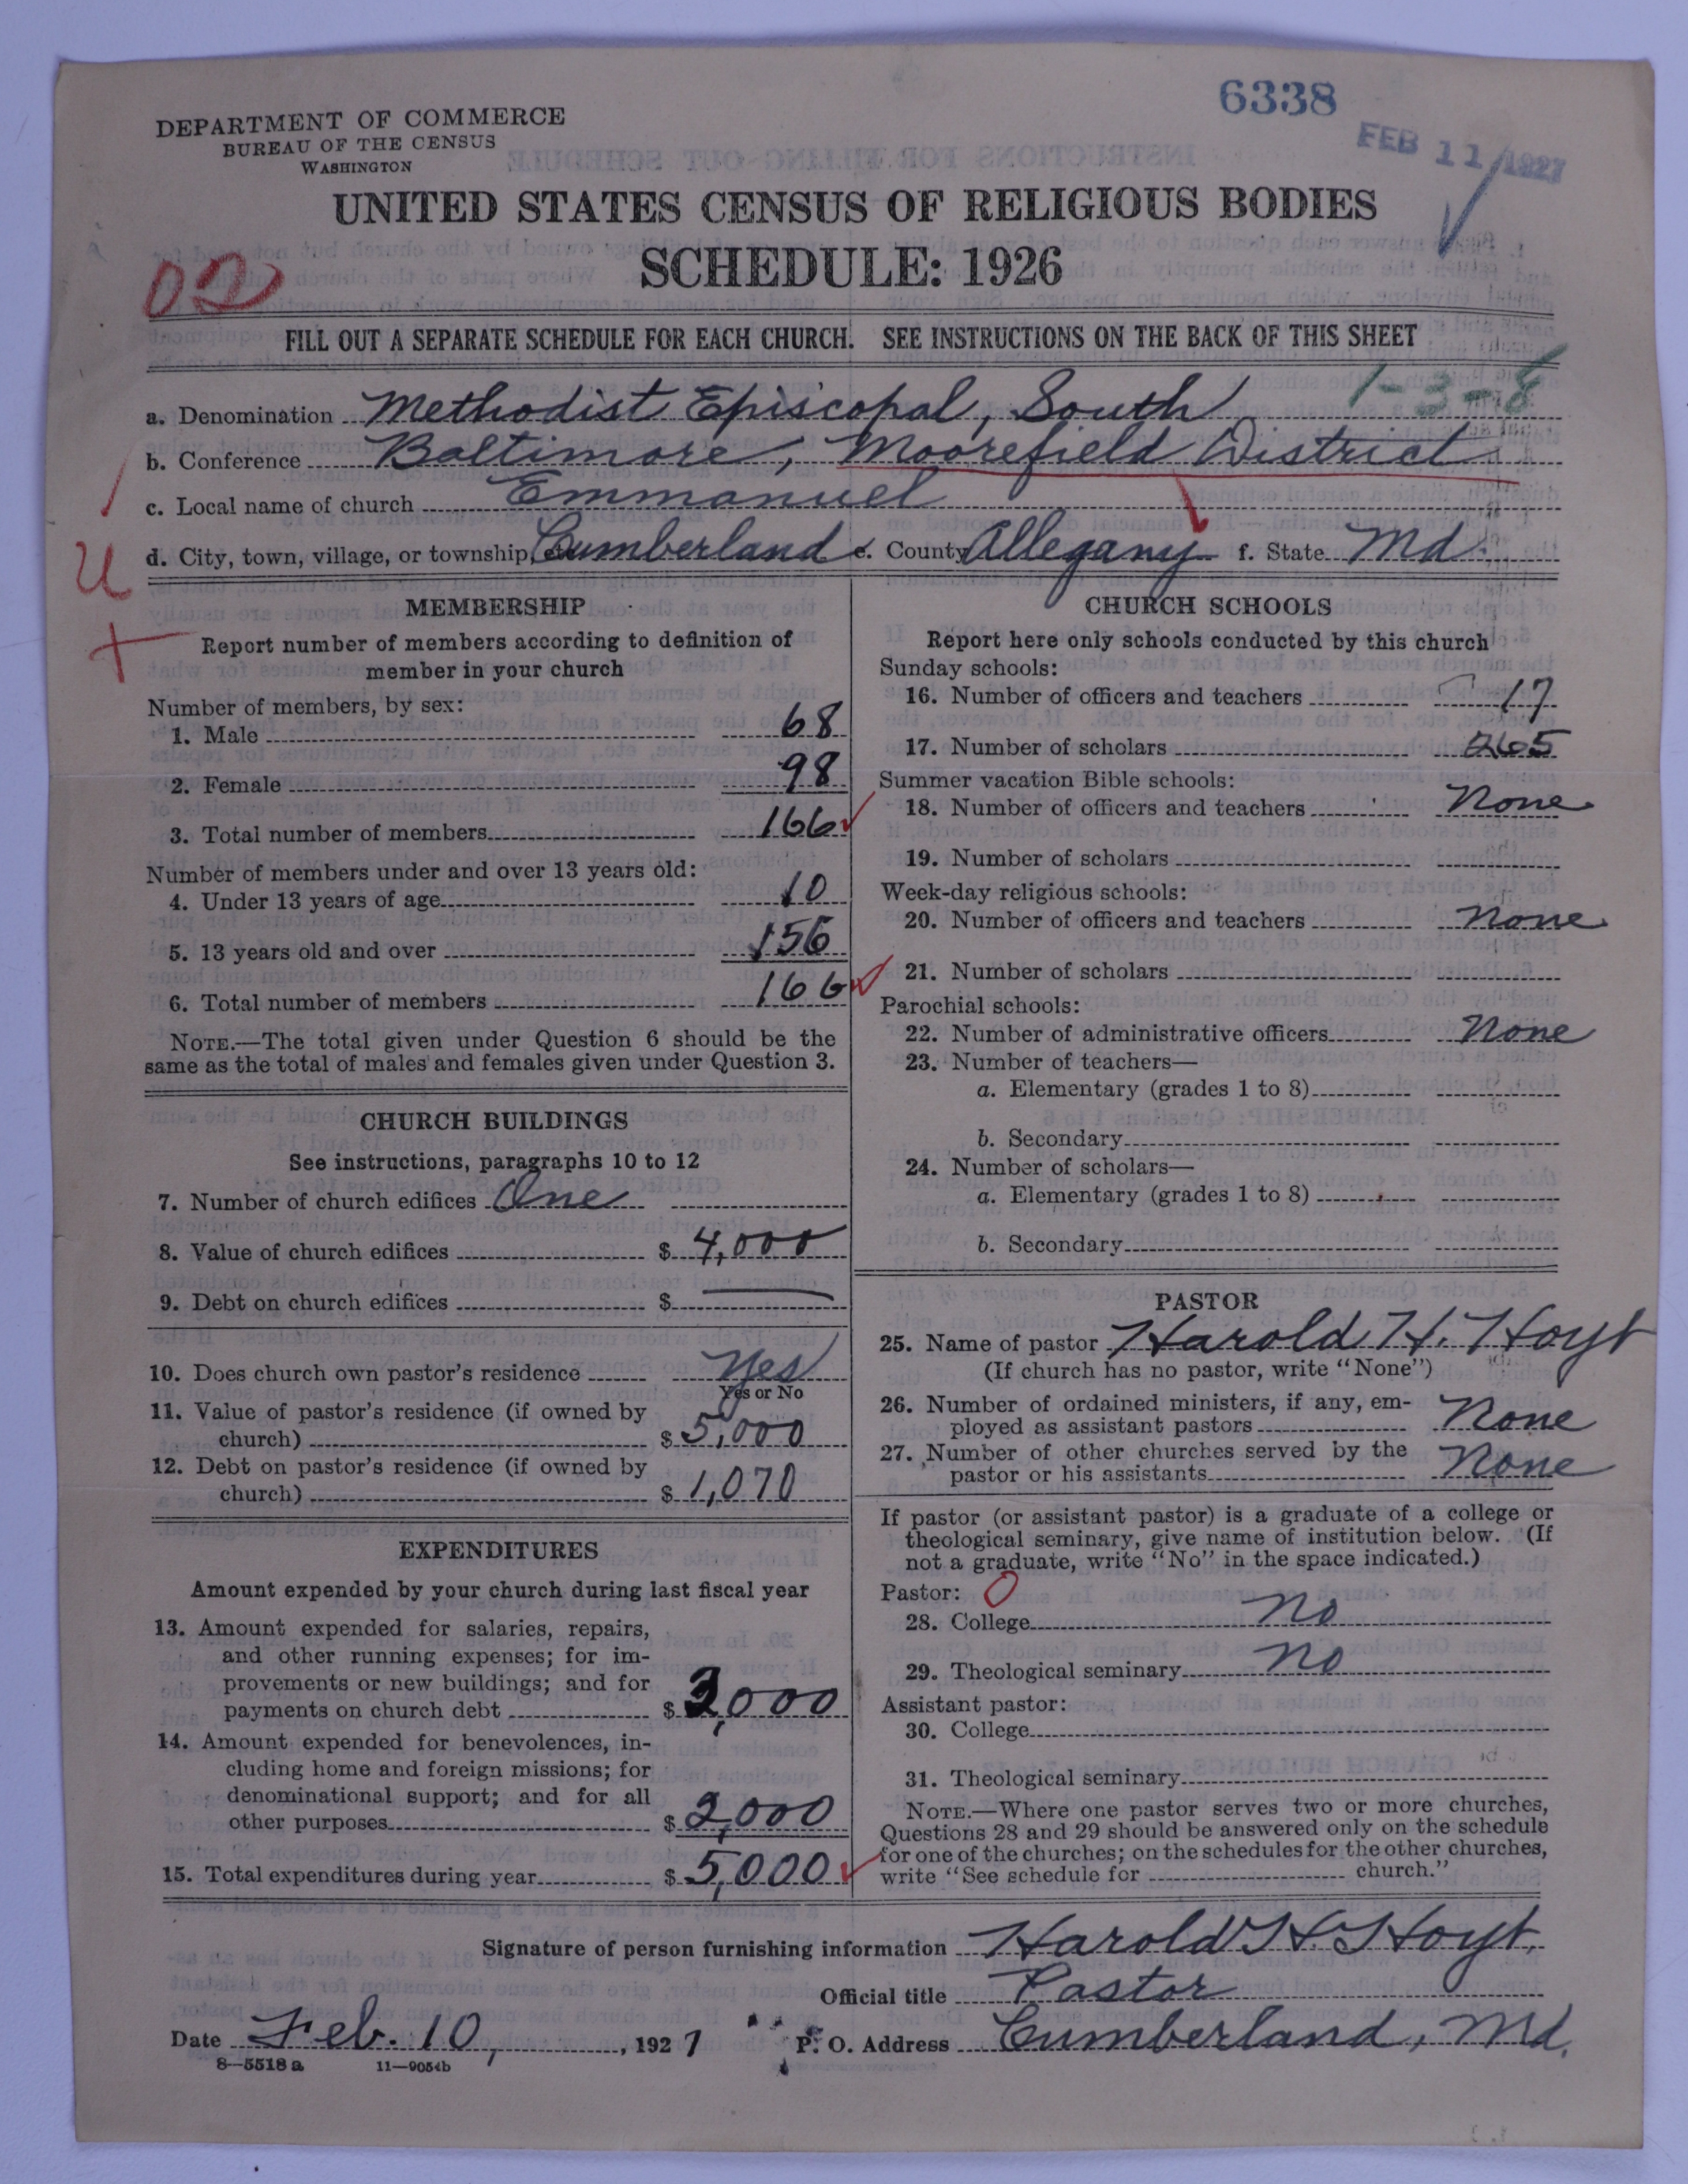 6338
FEB 11 1927
DEPARTMENT OF COMMERCE
BUREAU OF THE CENSUS
WASHINGTON
UNITED STATES CENSUS OF RELIGIOUS BODIES
SCHEDULE: 1926
FILL OUT A SEPARATE SCHEDULE FOR EACH CHURCH. SEE INSTRUCTIONS ON THE BACK OF THIS SHEET
1-3-8
a. Denomination Methodist Episcopal, South
b. Conference Baltimore, Moorefield District
c. Local name of church Emmanuel
d. City, town, village, or township, etc. Cumberland e. County Allegany f. State Md.
MEMBERSHIP
Report number of members according to definition of
member in your church
Number of members, by sex:
1. Male 68
2. Female 98
3. Total number of members 166
Number of members under and over 13 years old:
4. Under 13 years of age 10
5. 13 years old and over 156
6. Total number of members 166
NOTE.—The total given under Question 6 should be the
same as the total of males and females given under Question 3.
CHURCH BUILDINGS
See instructions, paragraphs 10 to 12
7. Number of church edifices One
8. Value of church edifices $ 4,000
9. Debt on church edifices $ —
10. Does church own pastor's residence Yes
Yes or No
11. Value of pastor's residence (if owned by
church) $ 5,000
12. Debt on pastor's residence (if owned by
church) $ 1,070
EXPENDITURES
Amount expended by your church during last fiscal year
13. Amount expended for salaries, repairs,
and other running expenses; for im-
provements or new buildings; and for
payments on church debt $ 3,000
14. Amount expended for benevolences, in-
cluding home and foreign missions; for
denominational support; and for all
other purposes $ 2,000
15. Total expenditures during year $ 5,000
CHURCH SCHOOLS
Report here only schools conducted by this church
Sunday schools:
16. Number of officers and teachers 17
17. Number of scholars 265
Summer vacation Bible schools:
18. Number of officers and teachers None
19. Number of scholars
Week-day religious schools:
20. Number of officers and teachers None
21. Number of scholars
Parochial schools:
22. Number of administrative officers None
23. Number of teachers—
a. Elementary (grades 1 to 8)
b. Secondary
24. Number of scholars—
a. Elementary (grades 1 to 8)
b. Secondary
PASTOR
25. Name of pastor Harold H. Hoyt
(If church has no pastor, write "None")
26. Number of ordained ministers, if any, em-
ployed as assistant pastors None
27. Number of other churches served by the
pastor or his assistants None
If pastor (or assistant pastor) is a graduate of a college or
theological seminary, give name of institution below. (If
not a graduate, write "No" in the space indicated.)
Pastor: O
28. College No
29. Theological seminary No
Assistant pastor:
30. College
31. Theological seminary
NOTE.—Where one pastor serves two or more churches,
Questions 28 and 29 should be answered only on the schedule
for one of the churches; on the schedules for the other churches,
write "See schedule for church."
Signature of person furnishing information Harold H. Hoyt.
Official title Pastor
Date Feb. 10, , 1927 P. O. Address Cumberland, Md.
8—5518 a 11—9054b